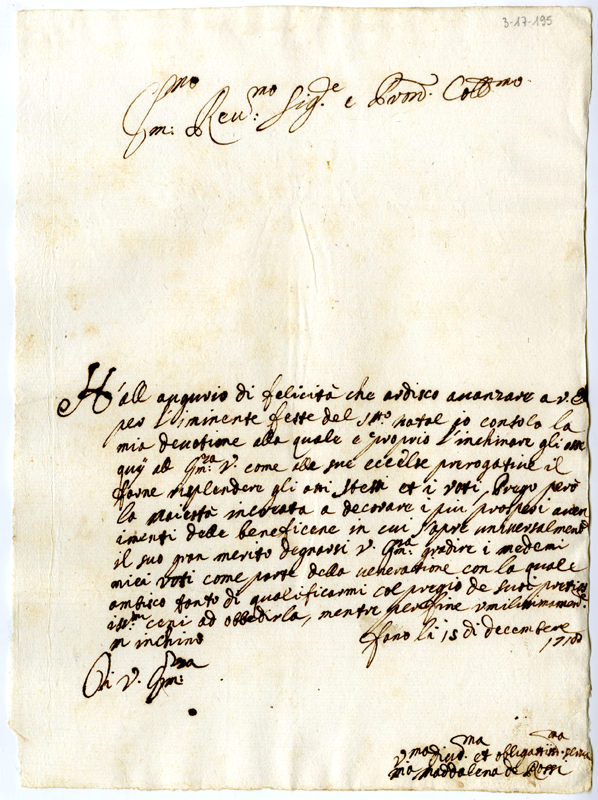 3-17-195
Em:mo Reu:mo Sig:e e Pron: Coll:mo
N'all augurio di felicità che ardisco auanzare a v. E
per l'iminente feste del S:to Natal io consolo la
mia deuotione alla quale è proprio l'inchinare gli osse
quÿ all Em:za v. come alle sue eccelse prerogatiue il
farne risplendere gli atti stessi et i voti, Prego però
la Maiestà increata a decorare i piu prosperi auen
imenti delle beneficene in cui s'apre uniuersalmend
il suo gran merito degnarsi v. Em:za gradire i medemi
miei voti come parte della veneratione con la quale
ambisco tanto di qualificarmi col pregio de suoi
ceni ad obbedirla, mentre per fine vmilissimamen
m inchino
Fano li 15 di decembere
1710
Di v. Em:za
V:ma diu:ma et obligatiss:ma serua
Maddalena de Rossi